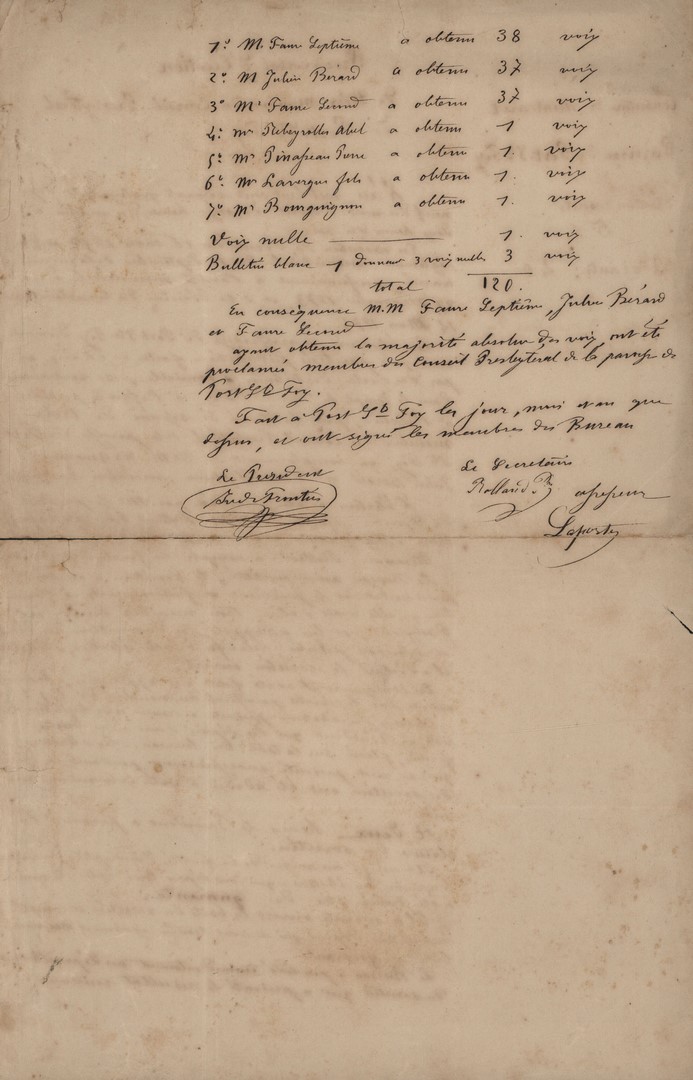 1º M. Faure Septième a obtenu 38 voix
2º M Jules Bérard a obtenu 37 voix
3º Mr Faure Second a obtenu 37 voix
4º Mr Rebeyrolles Abel a obtenu 1 voix
5º Mr Pinasseau Pierre a obtenu 1. voix
6º Mr Lavergne fils a obtenu 1. voix
7º Mr Bourguignon a obtenu 1. voix
Voix nulle 1. voix
Bulletin blanc 1 donnant 3 voix nulles 3 voix
total 120.
En conséquence M.M Faure Septième, Jules Bérard
et Faure Second
ayant obtenu la majorité absolue des voix, ont été
proclamés membres du Conseil Presbytéral de la paroisse de
Port Ste Foy.
Fait à Port Ste Foy les jour, mois et an que
dessus, et ont signé les membres du Bureau
Le Président
Le Secrétaire
Rolland
assesseur
Laporte